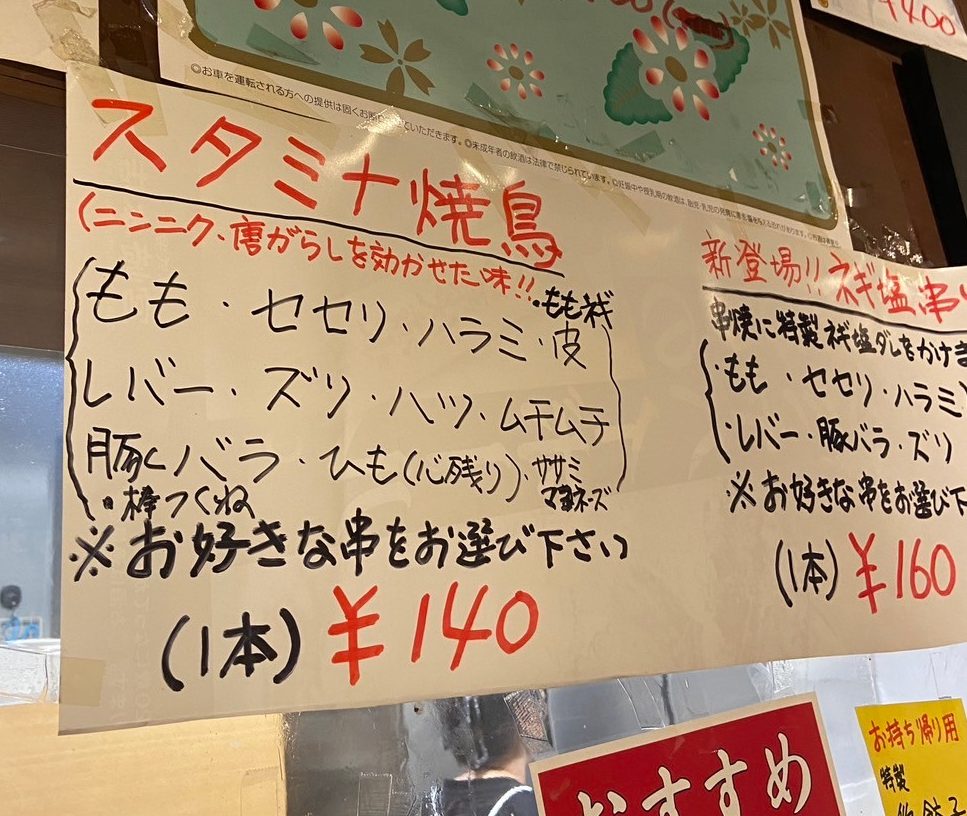 ¥400
◎お車を運転される方への提供は固くお断りさせていただきます。◎未成年者の飲酒は法律で禁じられています。◎妊娠中や授乳期の飲酒は、胎児・乳児の発育に悪
スタミナ焼鳥
(ニンニク、唐がらしを効かせた味!!
もも・セセリ・ハラミ・皮・ももネギ
レバー・ズリ・ハツ・ムチムチ
豚バラ・ひも(心残り)・ササミマヨネーズ
・棒つくね
※お好きな串をお選び下さい
(1本)¥140
新登場!!ネギ塩串
串焼に特製ネギ塩ダレをかけま
・もも・セセリ・ハラミ
・レバー・豚バラ・ズリ
※お好きな串をお選び下
(1本)¥160
おすすめ
お持ち帰り用
特製
餃子